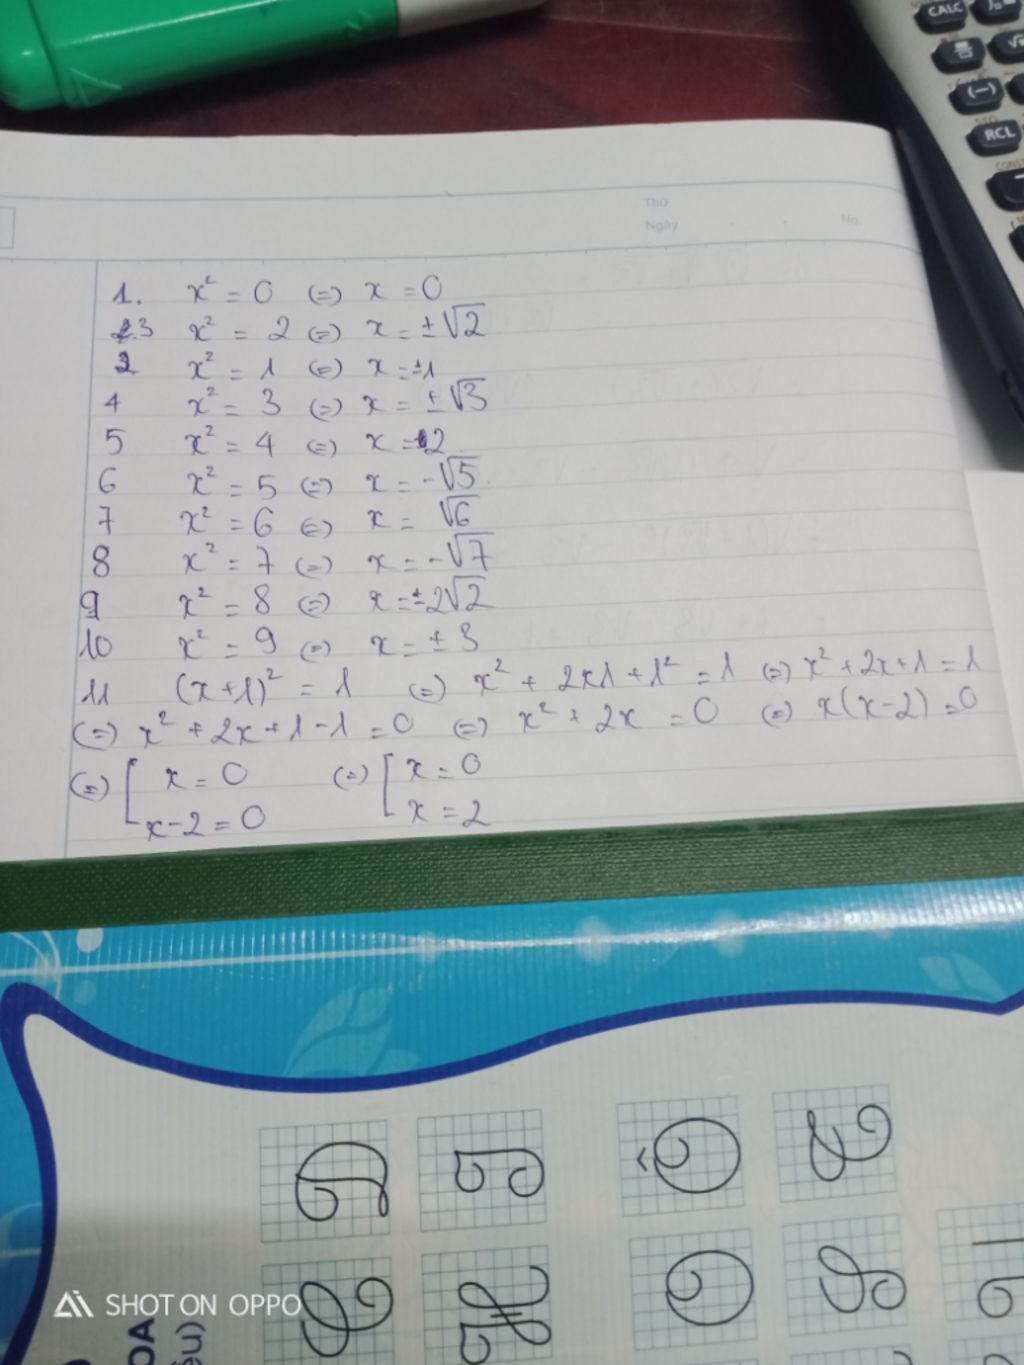 CALC
(-)
RCL
Thứ
Ngày No.
1. x² = 0 (=) x = 0
3 x² = 2 (=) x = ±√2
2 x² = 1 (=) x = ±1
4 x² = 3 (=) x = ±√3
5 x² = 4 (=) x = 2
6 x² = 5 (=) x = -√5
7 x² = 6 (=) x = √6
8 x² = 7 (=) x = -√7
9 x² = 8 (=) x = ±2√2
10 x² = 9 (=) x = ± 3
11 (x+1)² = 1 (=) x² + 2x1 + 1² = 1 (=) x² + 2x + 1 = 1
(=) x² + 2x + 1 - 1 = 0 (=) x² + 2x = 0 (=) x(x-2) = 0
(=) [ x = 0 (=) [ x = 0
x-2 = 0 x = 2
SHOT ON OPPO